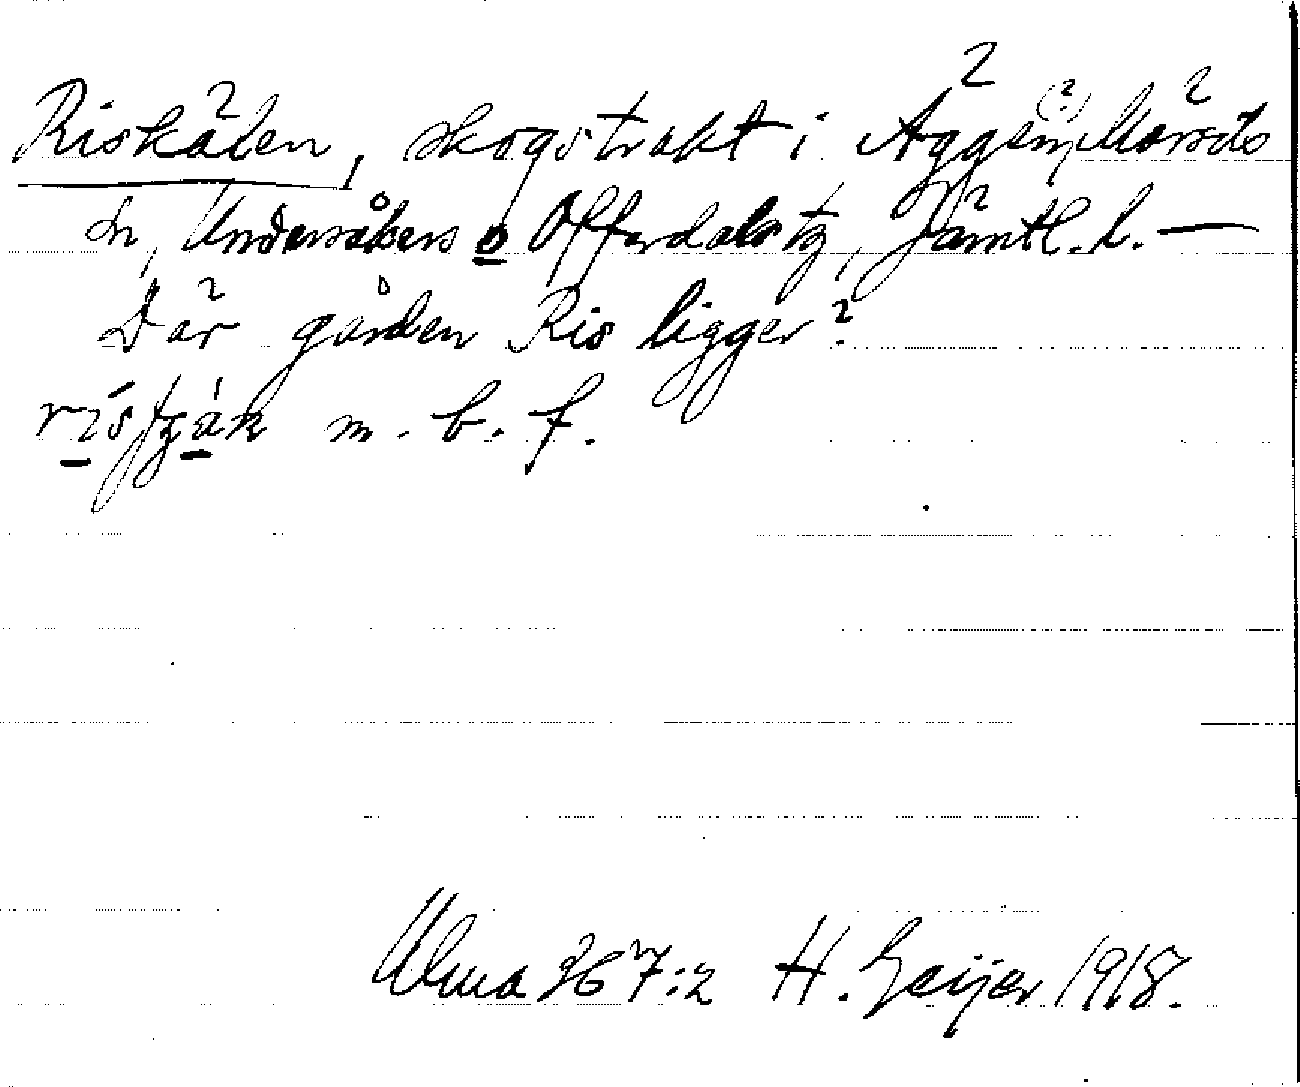 Riskälen, skogstrakt i Äggen(?), Mörsils
sn, Undersåkers o Offerdals tg, Jämtl. l. —
Där gården Ris ligger?
m. b. f.
Ulma 367:2 H. Geijer 1918.